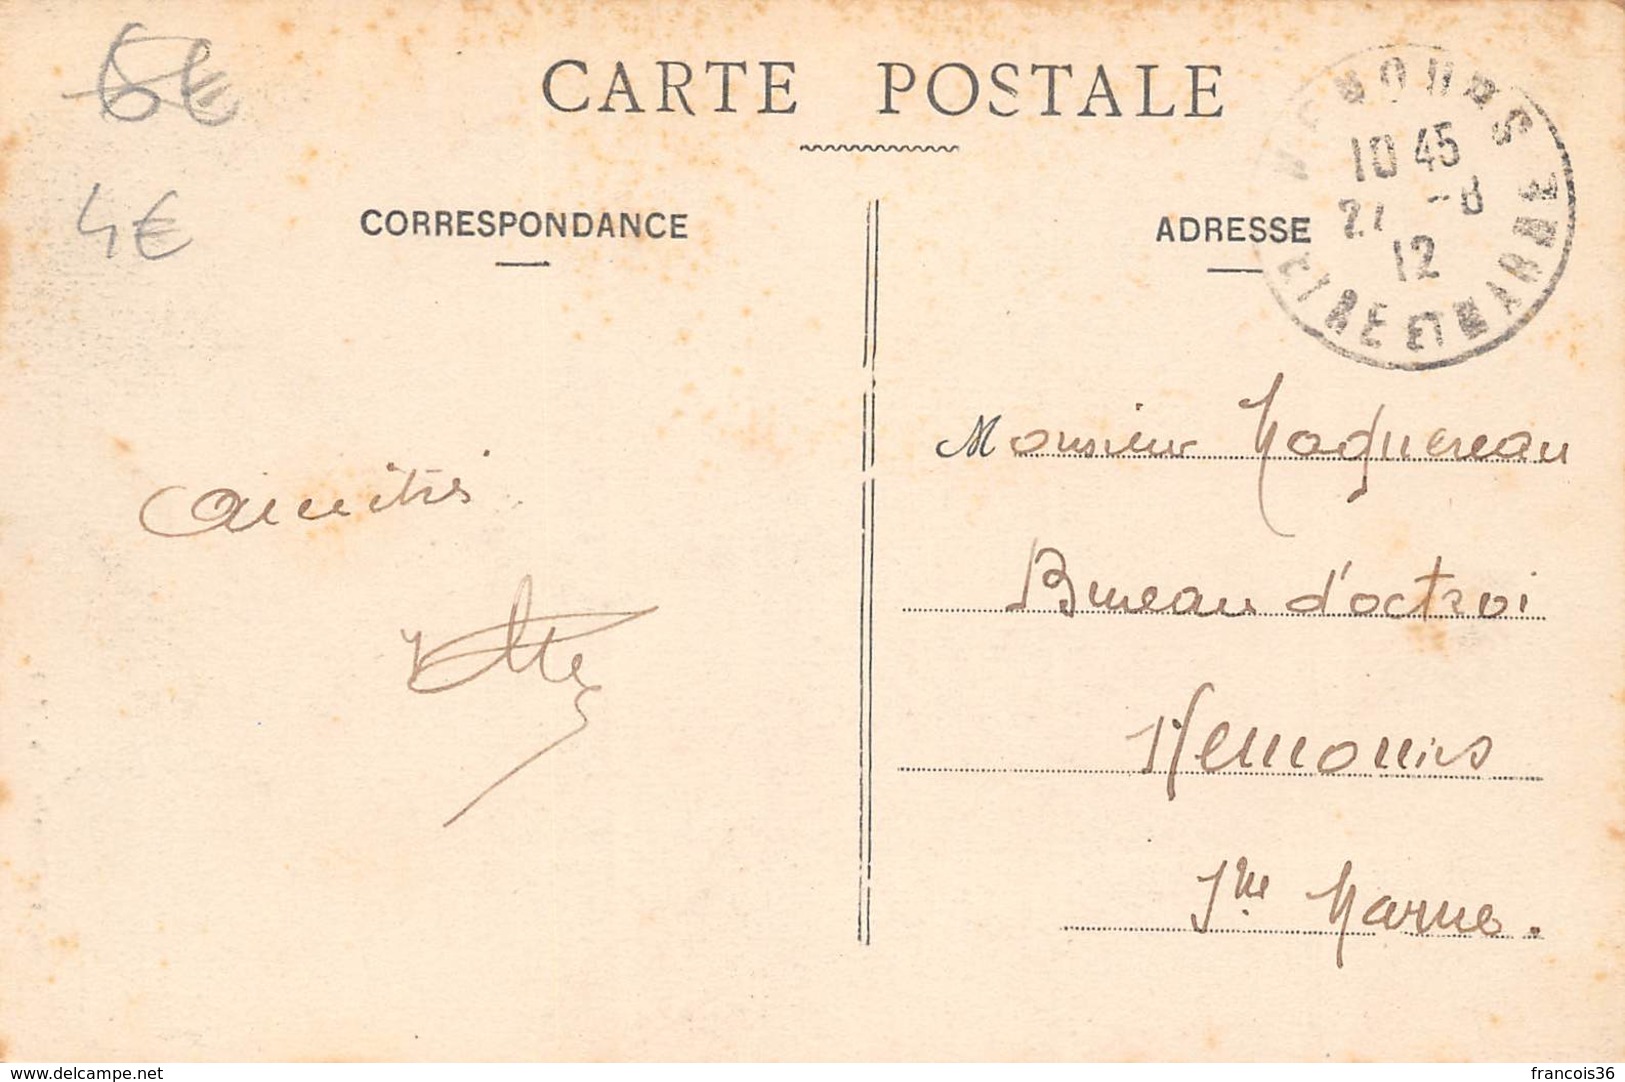 6€
4€
CARTE POSTALE
NEMOURS
10 45
27 -8
12
SEINE ET MARNE
CORRESPONDANCE
ADRESSE
Amitiés
Monsieur Maquereau
Bureau d'octroi
Nemours
Sne Marne.
www.delcampe.net
francois36